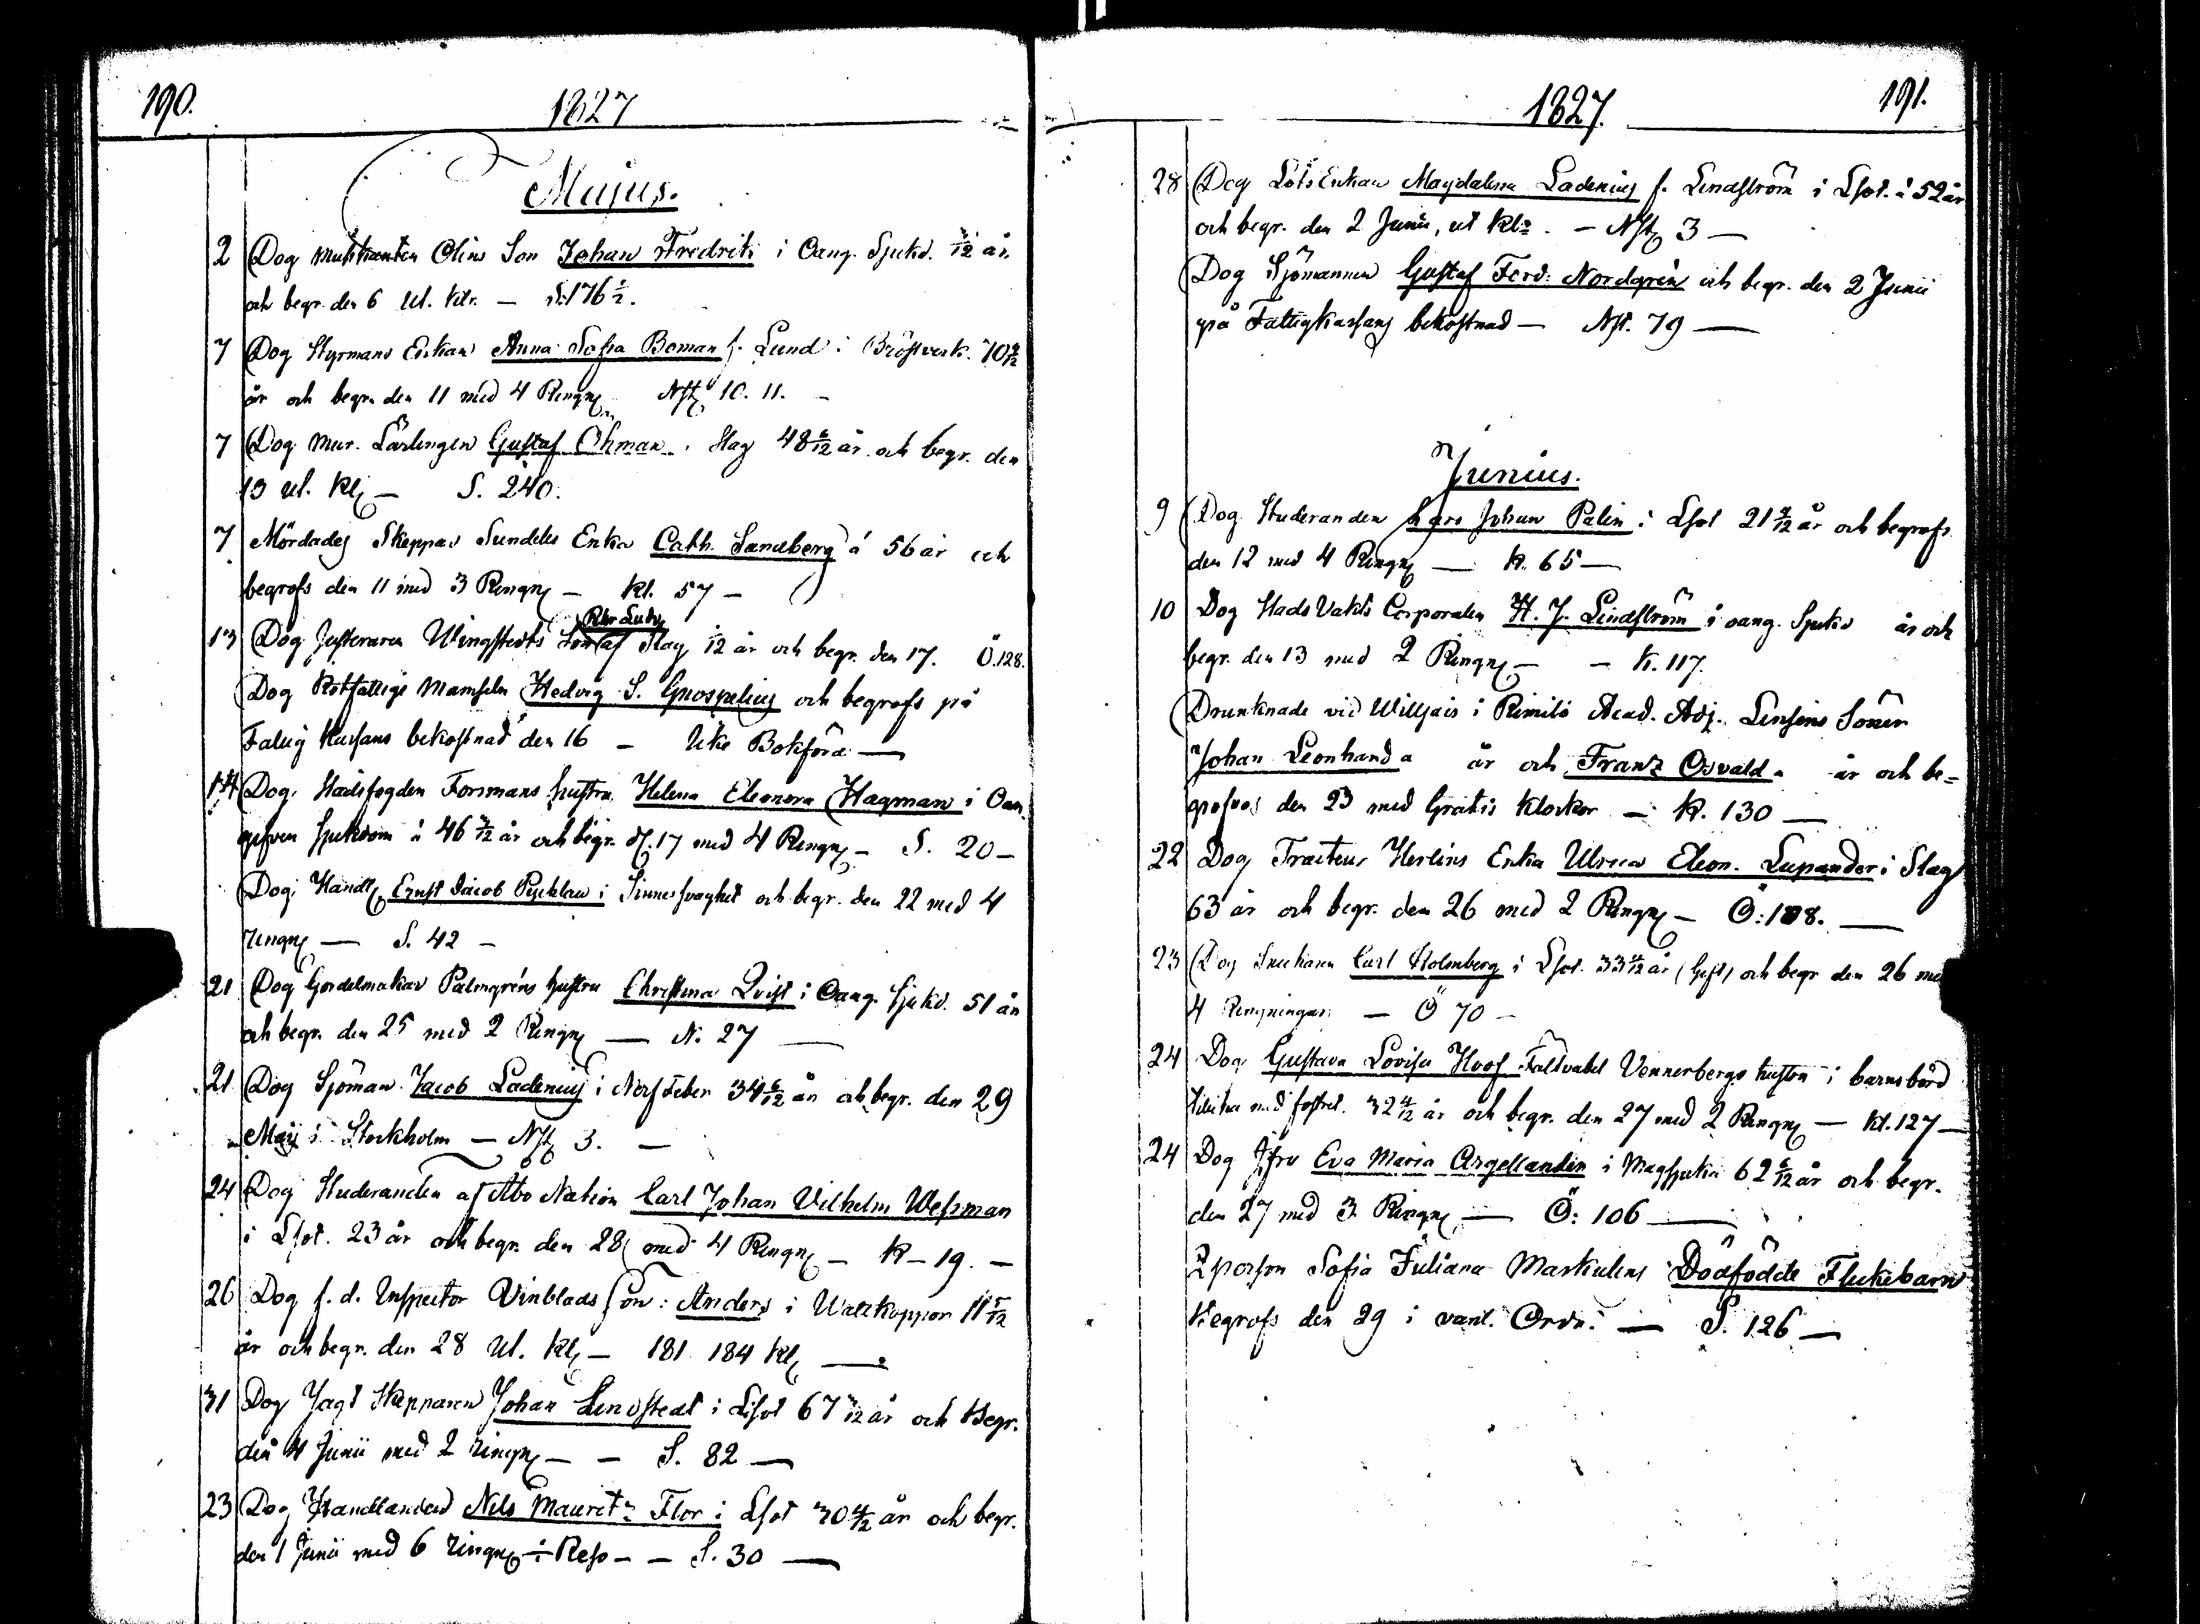 190.
1827
Majus.
2 Dog musikanten Olins Son Johan Fredrik i Oang. Sjukd. 3/12 år
och begr. den 6 ut. klr. — S. 176 1/2.
7 Dog Styrmans Enkan Anna Sofia Boman f. Lund i Bröstverk. 70
år och begr. den 11 med 4 Ringn Nst 10. 11. —
7 Dog Mur. Lärlingen Gustaf Öhman. Slag 48 6/12 år och begr. den
13 ut. Kl — S. 240.
7 Mördades Skeppar Sundells Enka Cath. Sandberg á 56 år och
begrofs den 11 med 3 Ringn — Kl. 57 —
13 Dog Justeraren Wingstedts Son af Slag /12 år och begr. den 17. Ö. 128.
Dog Rotfattige Mamseln Hedvig S. Gnospelius och begrofs på
Fattig Kassans bekostnad den 16 — Icke Bokförd —
14 Dog Stadsfogden Forsmans hustru Helena Eleonora Hagman i Oan
gifven sjukdom á 46 /12 år och begr. d. 17 med 4 Ringn — S. 20 —
Dog Handl Ernst Jacob Pycklau i Sinnessvaghet och begr. den 22 med 4
ringn — S. 42 —
21 Dog Gördelmakar Palmgréns hustru Christina Qvist i Oang. sjukd. 51 år
och begr. den 25 med 2 Ringn — N. 27 —
21 Dog Sjöman Jacob Ladenius i Nerffeber 34 6/12 år och begr. den 29
Maji i Stockholm — Nst 3. —
24 Dog Studeranden af Åbo Nation Carl Johan Vilhelm Wessman
i Lsot. 23 år och begr. den 28 med 4 Ringn — K — 19. —
26 Dog f. d. Inspector Vinblads son: Anders i Wattkoppor 11 5/12
år och begr. den 28 ut. Kl — 181 184 Kl —
31 Dog Jagt Skepparen Johan Lindstedt i Lsot 67 /12 år och begr.
den 4 Junii med 2 ringn — — S. 82 —
23 Dog Handlanden Nils Mauritz Flor i Lsot 30 4/12 år och begr.
den 1 Junii med 6 ringn — — S. 30 —
1827.
191.
28 Dog Lots Enkan Magdalena Ladenius f. Lindström i Lsot. á 52 år
och begr. den 2 Junii, ut Klr. — Nst 3 —
Dog Sjömannen Gustaf Ferd: Nordgrén och begr. den 2 Junii
på Fattigkassans bekostnad — Nst. 79 —
Junius.
9 Dog Studeranden Lars Johan Palin i Lsot 21 /12 år och begrofs
den 12 med 4 Ringn — K. 65 —
10 Dog Stads Vakts Corporalen H. J. Lindström i oang. Sjukd år och
begr. den 13 med 2 Ringn — — K. 117.
Drunknade vid Willnäs i Rimito Acad. Adj. Linséns Söner
Johan Leonhard a år och Franz Osvald a år och be=
grofvos den 23 med Gratis Klockor — K. 130 —
22 Dog Traiteur Herlins Enka Ulrica Eleon. Lupander i Slag
63 år och begr. den 26 med 2 Ringn — Ö: 108. —
23 Dog Snickaren Carl Holmberg i Lsot. 33 /12 år (Gift) och begr den 26 me
4 Ringningar — Ö 70 —
24 Dog Gustava Lovisa Hoof Fältväbel Vennerbergs hustru i barnsbörd
tillika med fostret. 32 4/12 år och begr. den 27 med 2 Ringn — Kl. 127 —
24 Dog Jfru Eva Maria Argellander i Magsjuka 62 6/12 år och begr.
den 27 med 3 Ringn — Ö: 106 —
Sofia Juliana Markulins Dödfödde Flickebarn
Begrofs den 29 i vanl. Ordn. — S. 126 —